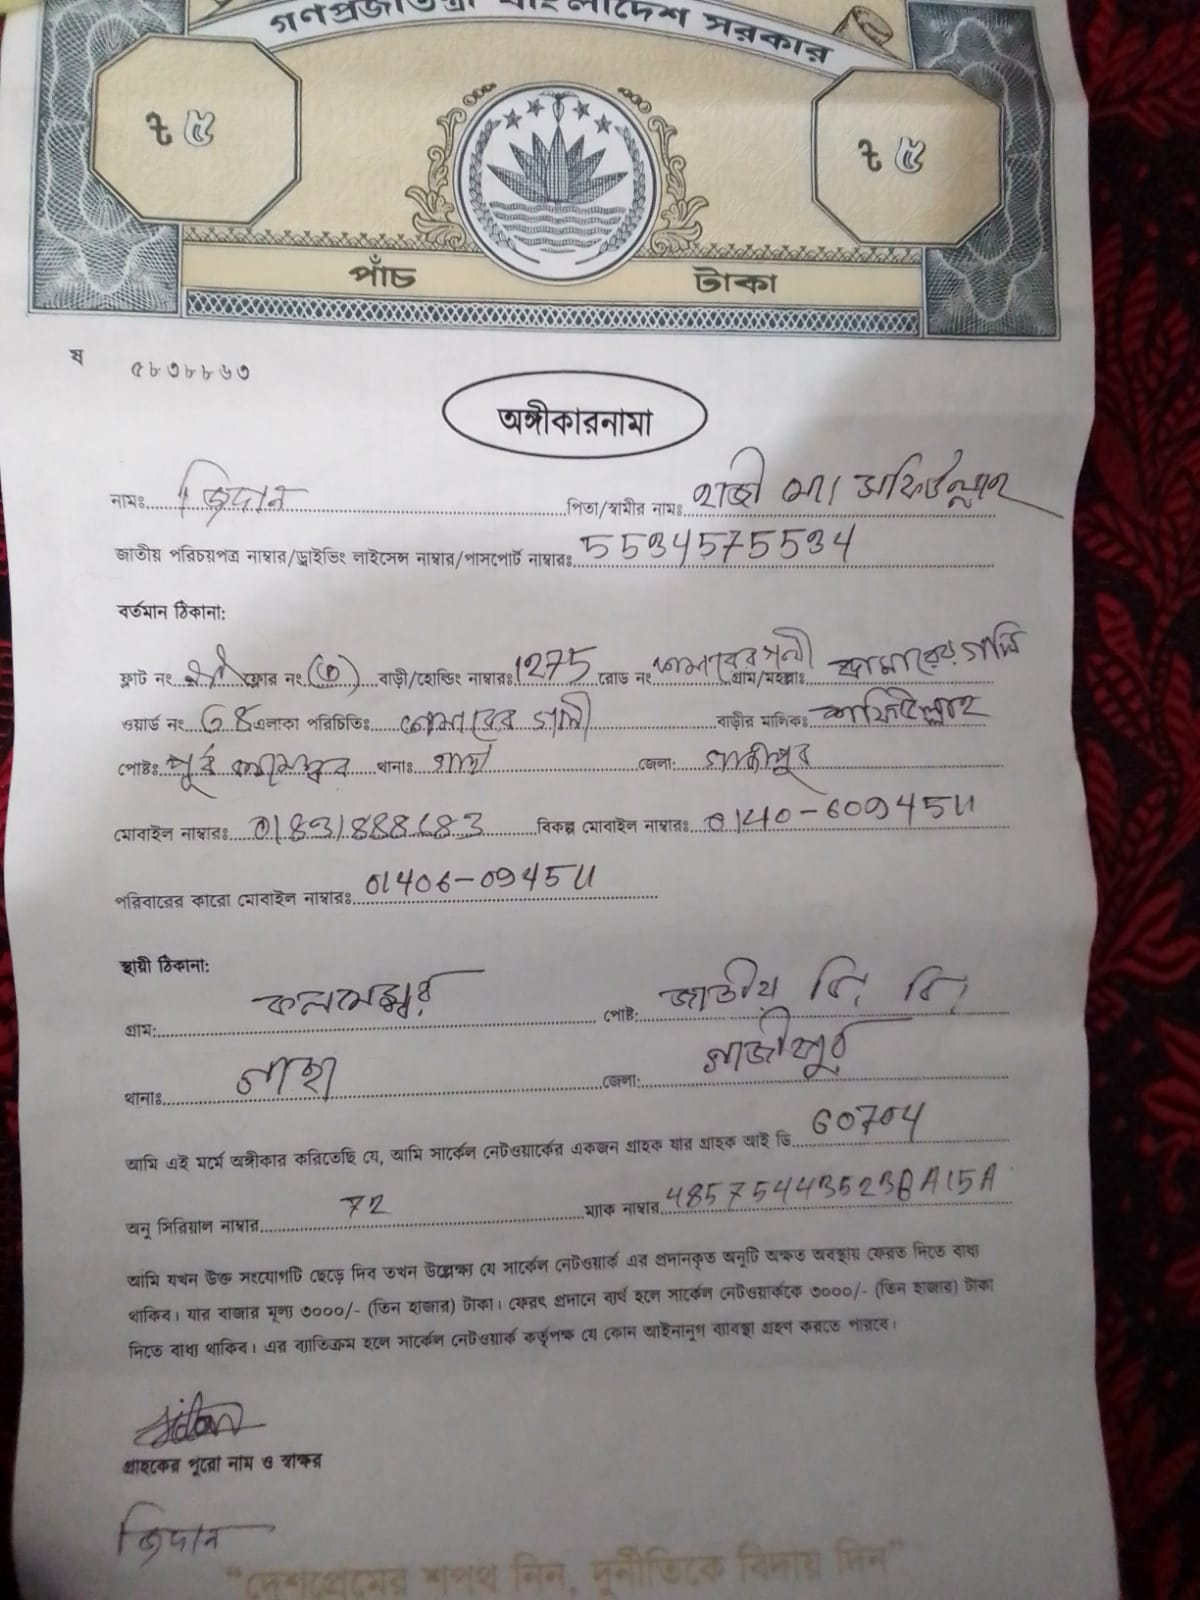 গণপ্রজাতন্ত্রী বাংলাদেশ সরকার
৳ ৫ ৳ ৫
পাঁচ টাকা
ষ ৫৮৩৮৮৬৩
অঙ্গীকারনামা
নামঃ জিদান পিতা/স্বামীর নামঃ হাজী মোঃ সফিউল্লাহ
জাতীয় পরিচয়পত্র নাম্বার/ড্রাইভিং লাইসেন্স নাম্বার/পাসপোর্ট নাম্বারঃ 5534575534
বর্তমান ঠিকানা:
ফ্লাট নং ফ্লোর নং বাড়ী/হোল্ডিং নাম্বারঃ 1275 রোড নং গ্রাম/মহল্লাঃ
ওয়ার্ড নং এলাকা পরিচিতিঃ বাড়ীর মালিকঃ শফিউল্লাহ
পোষ্টঃ পূর্ব কলমেশ্বর থানাঃ গাছা জেলা: গাজীপুর
মোবাইল নাম্বারঃ বিকল্প মোবাইল নাম্বারঃ
পরিবারের কারো মোবাইল নাম্বারঃ
স্থায়ী ঠিকানা:
গ্রাম: কলমেশ্বর পোষ্ট: জাতীয় বি. বি.
থানাঃ গাছা জেলা: গাজীপুর
আমি এই মর্মে অঙ্গীকার করিতেছি যে, আমি সার্কেল নেটওয়ার্কের একজন গ্রাহক যার গ্রাহক আই ডি 60704
অনু সিরিয়াল নাম্বার 72 ম্যাক নাম্বার
আমি যখন উক্ত সংযোগটি ছেড়ে দিব তখন উল্লেক্ষ্য যে সার্কেল নেটওয়ার্ক এর প্রদানকৃত অনুটি অক্ষত অবস্থায় ফেরত দিতে বাধ্য
থাকিব। যার বাজার মূল্য ৩০০০/- (তিন হাজার) টাকা। ফেরৎ প্রদানে ব্যর্থ হলে সার্কেল নেটওয়ার্ককে ৩০০০/- (তিন হাজার) টাকা
দিতে বাধ্য থাকিব। এর ব্যাতিক্রম হলে সার্কেল নেটওয়ার্ক কর্তৃপক্ষ যে কোন আইনানুগ ব্যাবস্থা গ্রহণ করতে পারবে।
গ্রাহকের পুরো নাম ও স্বাক্ষর
জিদান
“দেশপ্রেমের শপথ নিন, দুর্নীতিকে বিদায় দিন”